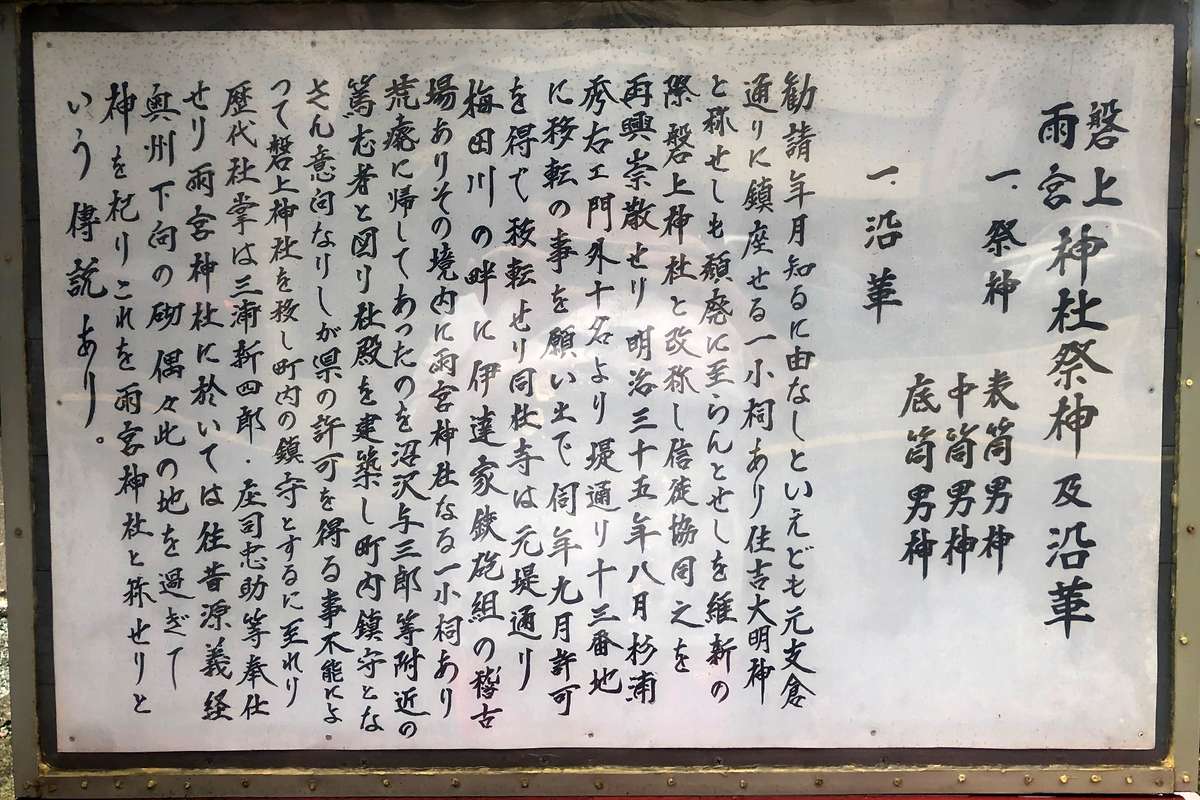 磐上
雨宮
神社祭神及沿革
一、祭神
表筒男神
中筒男神
底筒男神
一、沿革
勧請年月知るに由なしといえども元支倉
通りに鎮座せる一小祠あり住吉大明神
と称せしも頽廃に至らんとせしを維新の
際磐上神社と改称し信徒協同之を
再興崇敬せり明治三十五年八月杉浦
秀右エ門外十名より堤通り十三番地
に移転の事を願い出で同年九月許可
を得て移転せり同社寺は元堤通り
梅田川の畔に伊達家鉄砲組の稽古
場ありその境内に雨宮神社なる一小祠あり
荒廃に帰してあったのを沼沢与三郎等附近の
篤志者と図り社殿を建築し町内鎮守とな
さん意向なりしが県の許可を得る事不能によ
って磐上神社を移し町内の鎮守とするに至れり
歴代社掌は三浦新四郎・庄司忠助等奉仕
せり雨宮神社に於いては往昔源義経
奥州下向の砌偶々此の地を過ぎて
神を祀りこれを雨宮神社と称せりと
いう傳説あり。